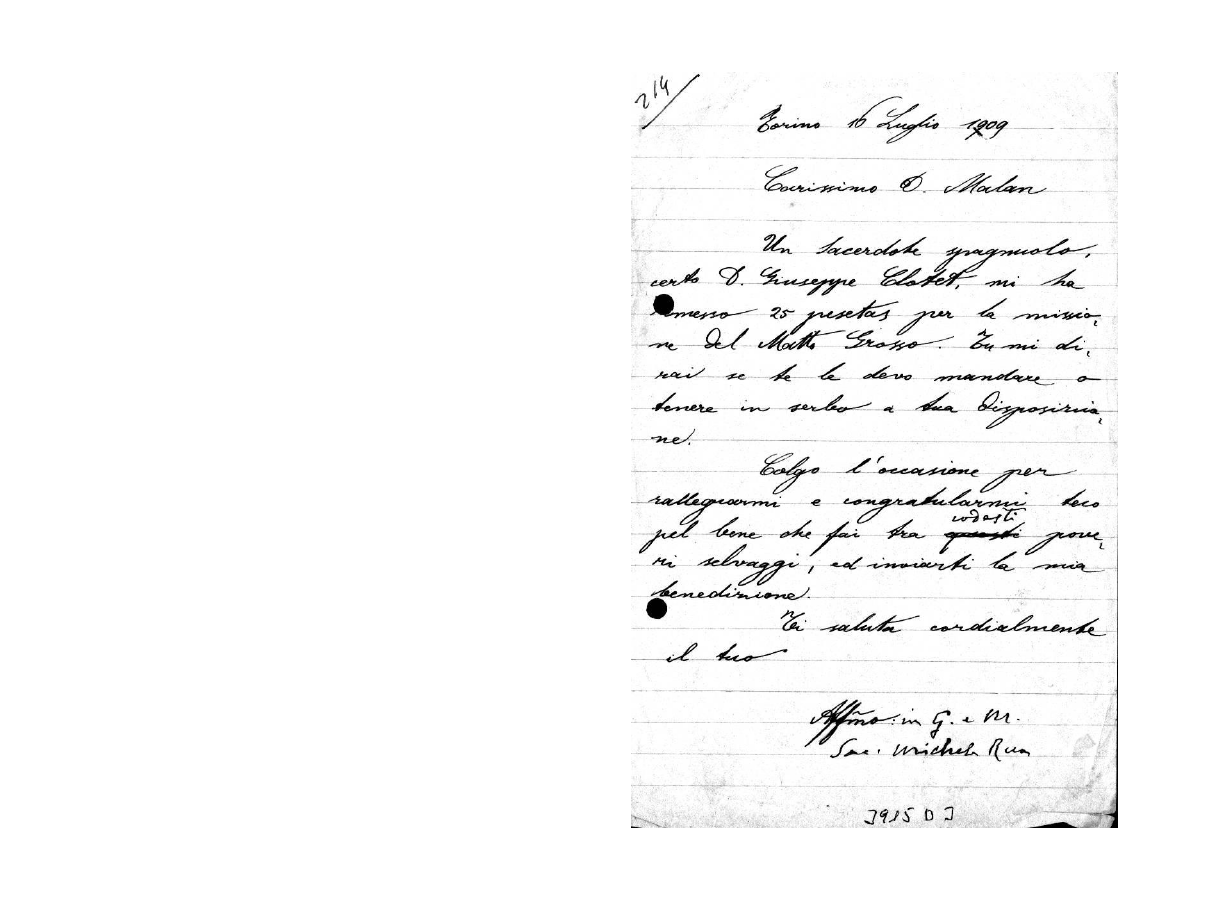 214
Torino 16 Luglio 1909
Carissimo D. Malan
Un Sacerdote spagnuolo,
certo D. Giuseppe Clotet, mi ha
rimesso 25 pesetas per la missio-
ne del Matto Grosso. Tu mi di-
rai se te le devo mandare o
tenere in serbo a tua disposizio-
ne.
Colgo l'occasione per
rallegrarmi e congratularmi teco
codesti
pel bene che fai tra questi pove-
ri selvaggi, ed inviarti la mia
benedizione.
Ti saluta cordialmente
il tuo
Affmo: in G. e M.
Sac. Michele Rua
3915 D 3